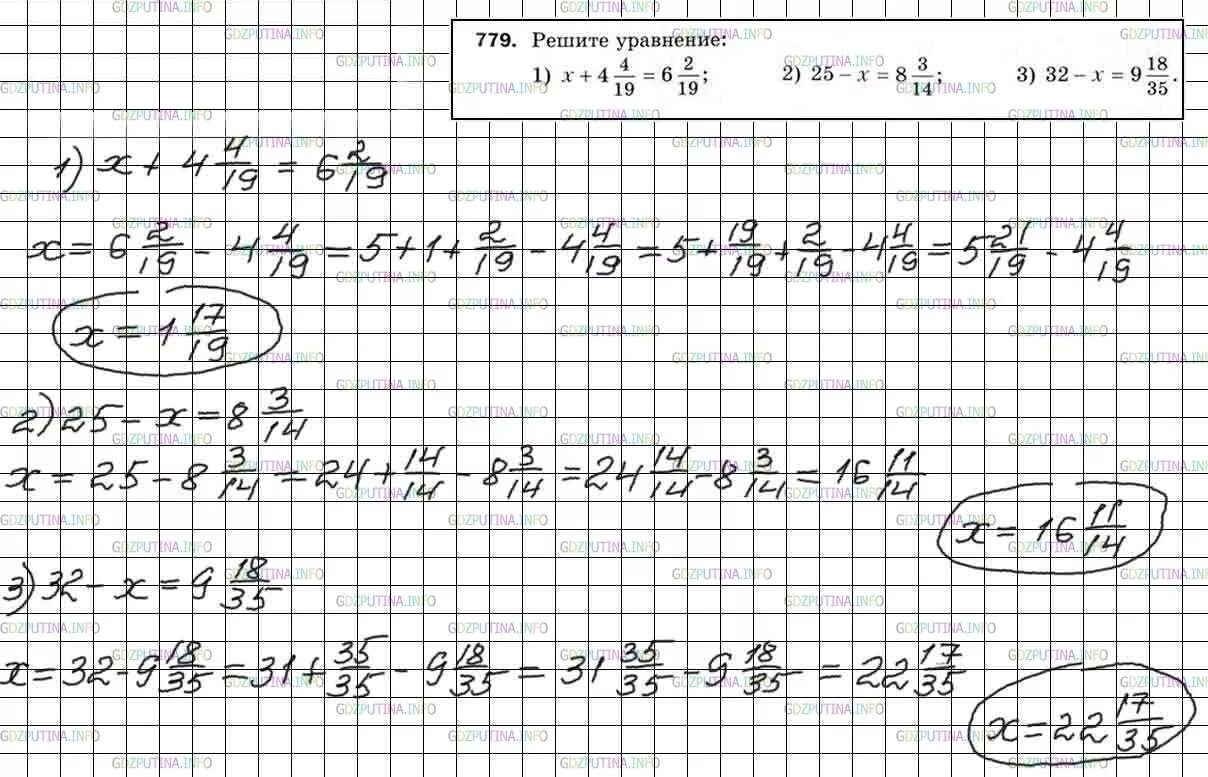 779. Решите уравнение:
1) x + 4 4/19 = 6 2/19; 2) 25 − x = 8 3/14; 3) 32 − x = 9 18/35.
1) x + 4 4/19 = 6 2/19
x = 6 2/19 − 4 4/19 = 5 + 1 + 2/19 − 4 4/19 = 5 + 19/19 + 2/19 − 4 4/19 = 5 21/19 − 4 4/19
x = 1 17/19
2) 25 − x = 8 3/14
x = 25 − 8 3/14 = 24 + 14/14 − 8 3/14 = 24 14/14 − 8 3/14 = 16 11/14
x = 16 11/14
3) 32 − x = 9 18/35
x = 32 − 9 18/35 = 31 + 35/35 − 9 18/35 = 31 35/35 − 9 18/35 = 22 17/35
x = 22 17/35
GDZPUTINA.INFO